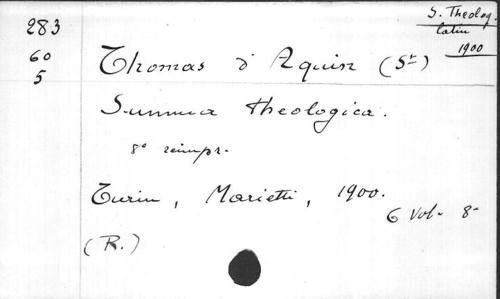 S. Theolog.
latin
1900
283
60
5
Thomas d'Aquin (St)
Summa theologica.
8e réimpr.
Turin, Marietti, 1900.
6 Vol. 8°
(R.)